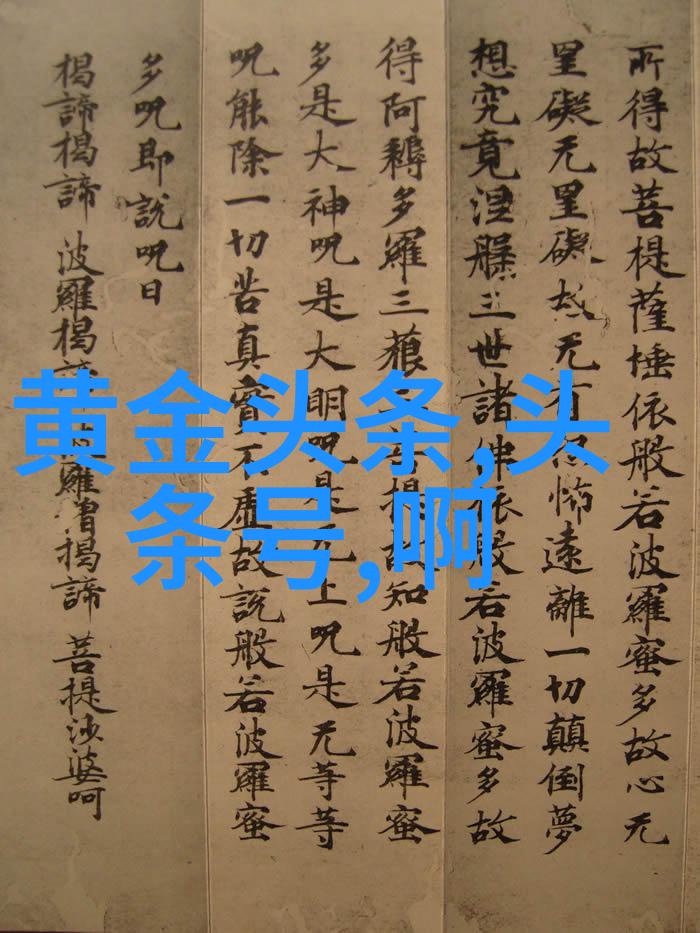 所得故菩提薩埵依般若波羅蜜多故心无
罣礙无罣礙故无有恐怖遠離一切顛倒夢
想究竟涅槃三世諸佛依般若波羅蜜多故
得阿耨多羅三藐三菩提故知般若波羅蜜
多是大神呪是大明呪是无上呪是无等等
呪能除一切苦真實不虛故說般若波羅蜜
多呪即說呪曰
揭諦揭諦 波羅揭諦 波羅僧揭諦 菩提沙婆呵
黄金头条,头
条号,啊